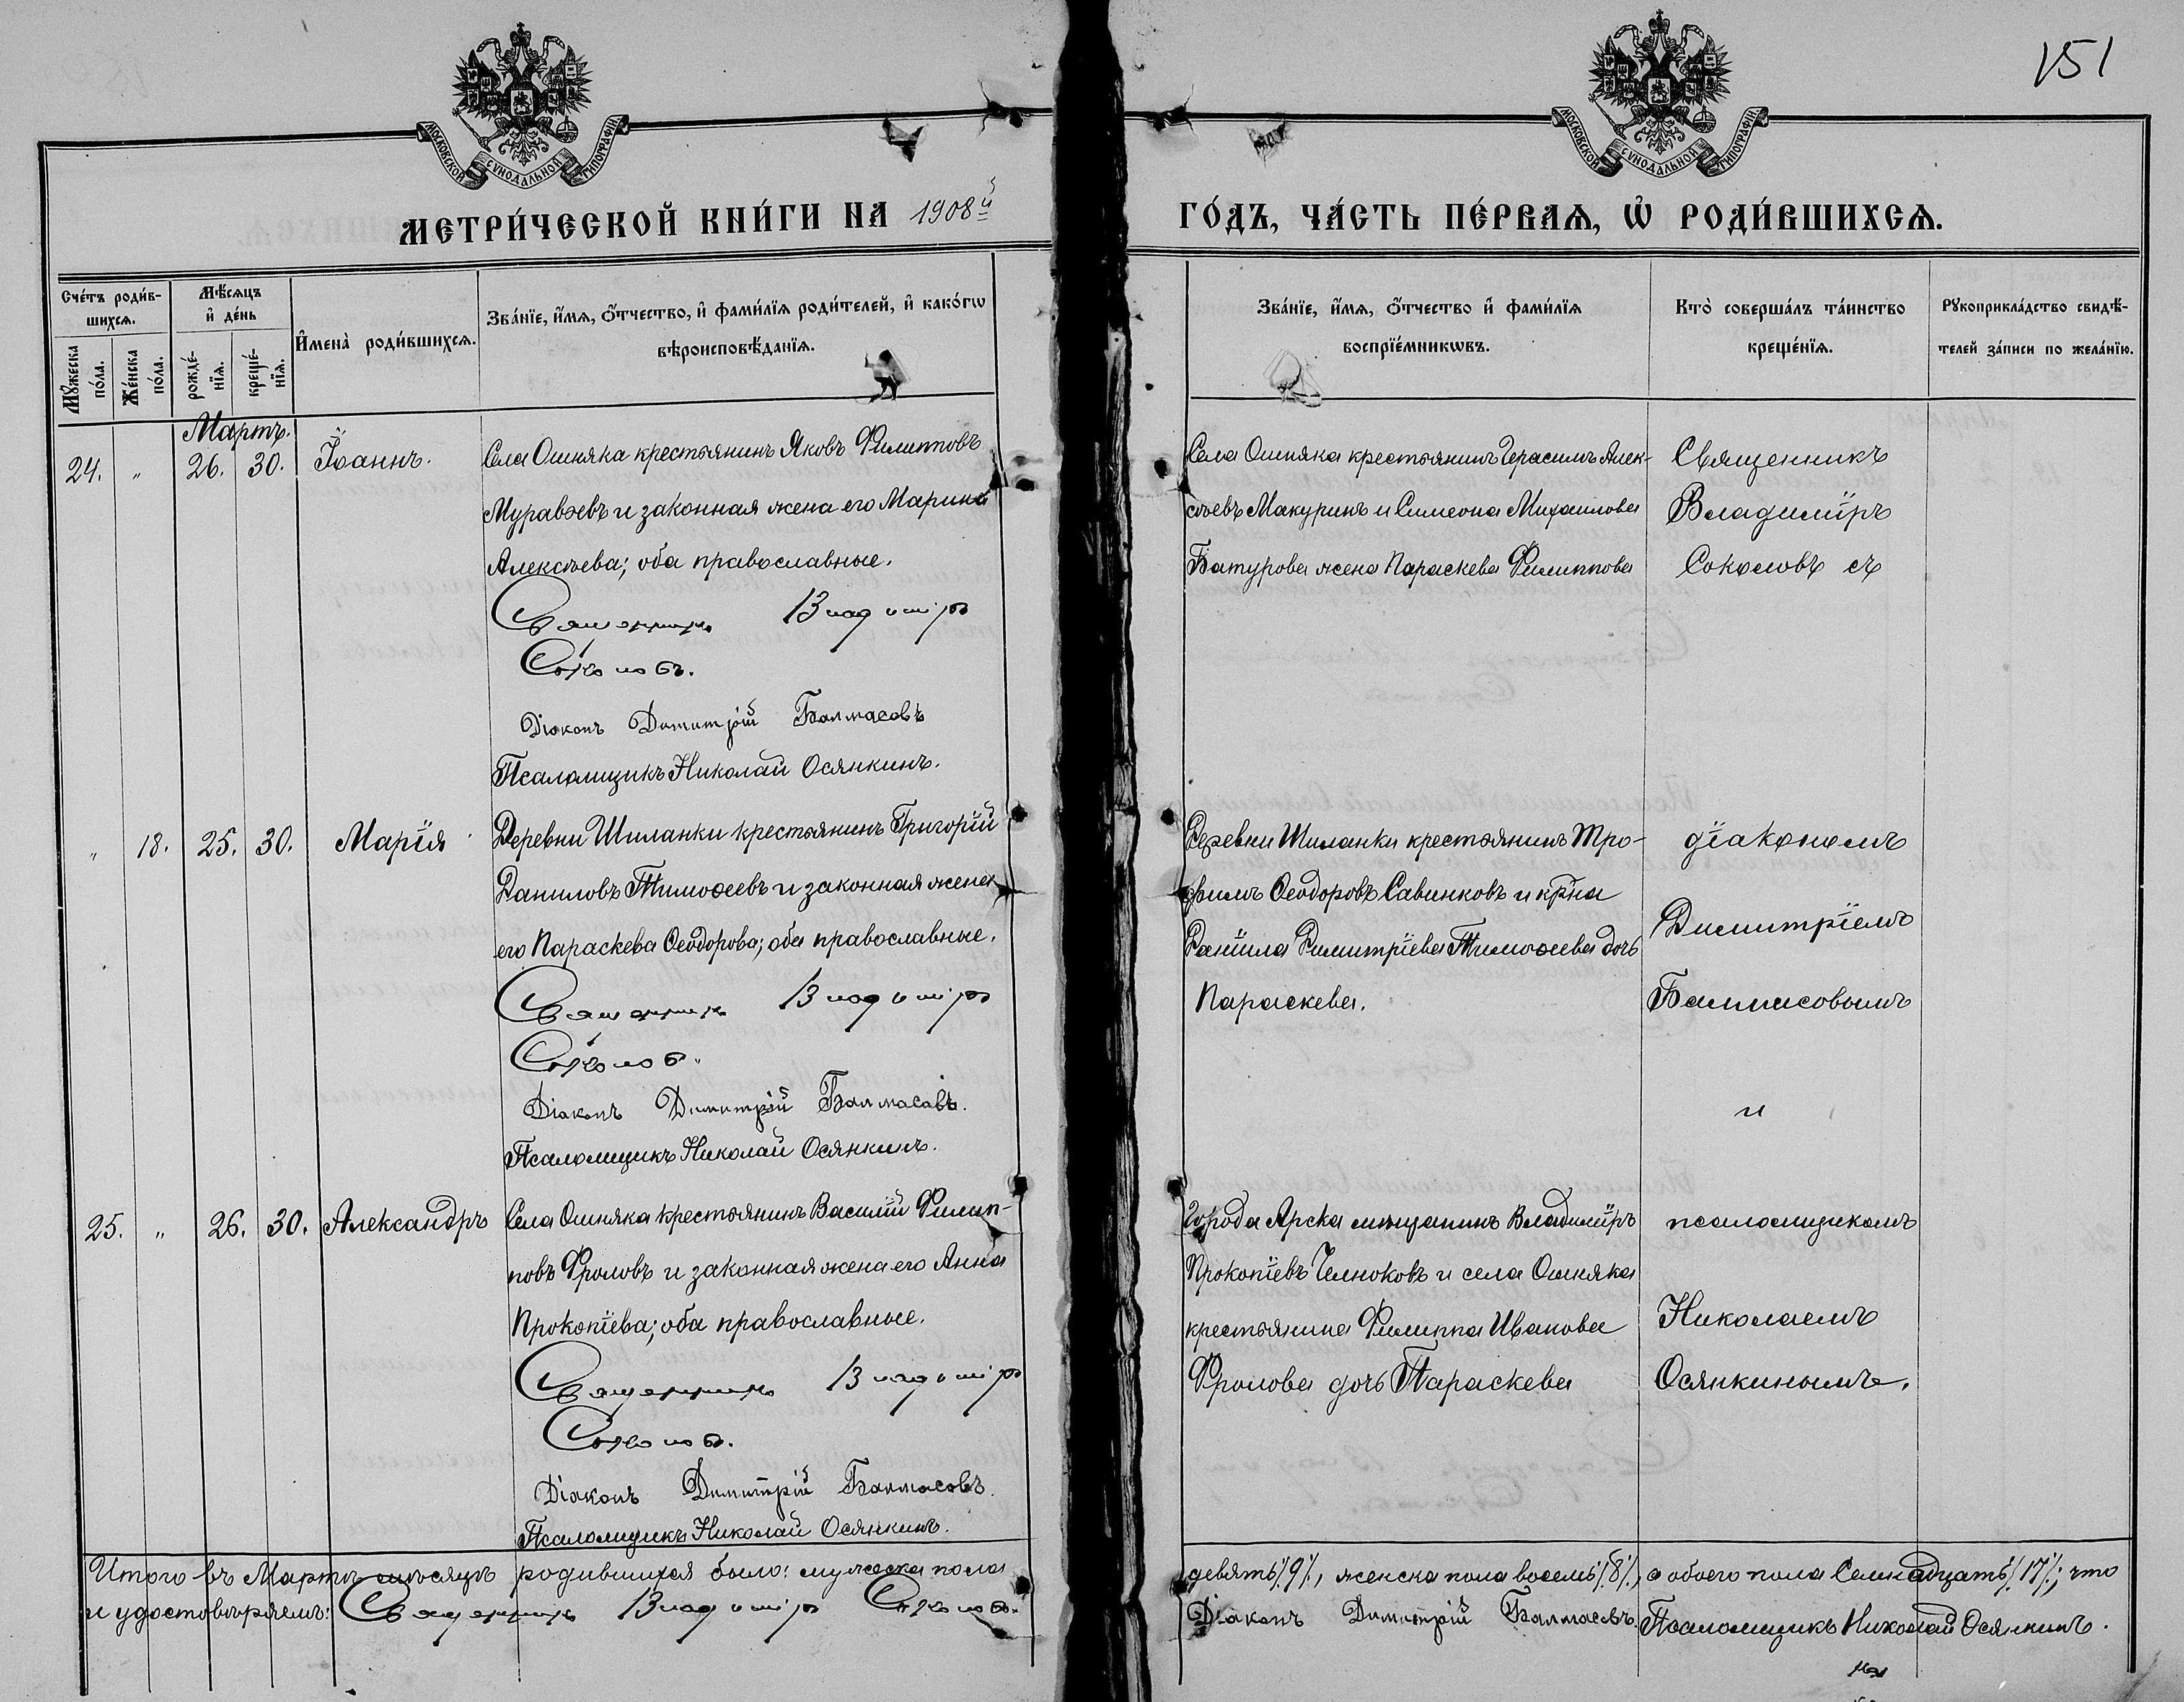 151
МОСКОВСКОЙ СѴНОДАЛЬНОЙ ТИПОГРАФІИ.
МОСКОВСКОЙ СѴНОДАЛЬНОЙ ТИПОГРАФІИ.
МЕТРИ́ЧЕСКОЙ КНИ́ГИ НА 1908й ГО́ДЪ, ЧА́СТЬ ПЕ́РВАѦ, Ѡ҆ РОДИ́ВШИХСѦ.
Сче́тъ роди́в-
шихсѧ.
Мꙋ́жеска
по́ла.
Же́нска
по́ла.
Мѣ́сяцъ
и҆ де́нь
рожде́-
нїѧ.
креще́-
нїѧ.
И҆мена̀ роди́вшихсѧ.
Зва́нїе, и҆́мѧ, ѻ҆́тчество, и҆ фами́лїѧ роди́телей, и҆ како́гѡ
вѣроисповѣ́данїѧ.
Зва́нїе, и҆́мѧ, ѻ҆́тчество и҆ фами́лїѧ
воспрїе́мникѡвъ.
Кто̀ соверша́лъ та́инство
креще́нїѧ.
Рꙋкоприкла́дство свидѣ́-
телей за́писи по жела́нїю.
Мартъ.
24. " 26. 30. Їоаннъ.
Села Ошняка крестьянинъ Яковъ Филипповъ
Муравьевъ и законная жена его Марина
Алексѣева; оба православные.
Священникъ Владиміръ
Соколовъ.
Діаконъ Димитрій Балмасовъ
Псаломщикъ Николай Осянкинъ.
Села Ошняка крестьянинъ Герасимъ Алек-
сѣевъ Макуринъ и Симеона Михаилова
Батурова жена Параскева Филиппова
Священникъ
Владиміръ
Соколовъ съ
" 18. 25. 30. Марїя
Деревни Шиланки крестьянинъ Григорїй
Даниловъ Тимоѳеевъ и законная жена
его Параскева Ѳеодорова; оба православные.
Священникъ Владиміръ
Соколовъ.
Діаконъ Димитрій Балмасовъ.
Псаломщикъ Николай Осянкинъ.
Деревни Шиланки крестьянинъ Тро-
фимъ Ѳеодоровъ Савинковъ и кр̃на
Данїила Димитрїева Тимоѳеева дочь
Параскева.
дїакономъ
Димитрїемъ
Балмасовымъ
и
25. " 26. 30. Александръ
Села Ошняка крестьянинъ Василїй Филип-
повъ Фроловъ и законная жена его Анна
Прокопїева; оба православные.
Священникъ Владиміръ
Соколовъ.
Діаконъ Димитрій Балмасовъ.
Псаломщикъ Николай Осянкинъ.
Города Арска мѣщанинъ Владимїръ
Прокопїевъ Челноковъ и села Ошняка
крестьянина Филиппа Иванова
Фролова дочь Параскева
псаломщикомъ
Николаемъ
Осянкинымъ.
Итого въ Мартѣ мѣсяцѣ родившихся было: мужеска пола девять/9/, женска пола восемь/8/, а обоего пола Семнадцать/17/; что
и удостовѣряемъ: Священникъ Владиміръ Соколовъ. Діаконъ Димитрій Балмасовъ. Псаломщикъ Николай Осянкинъ.